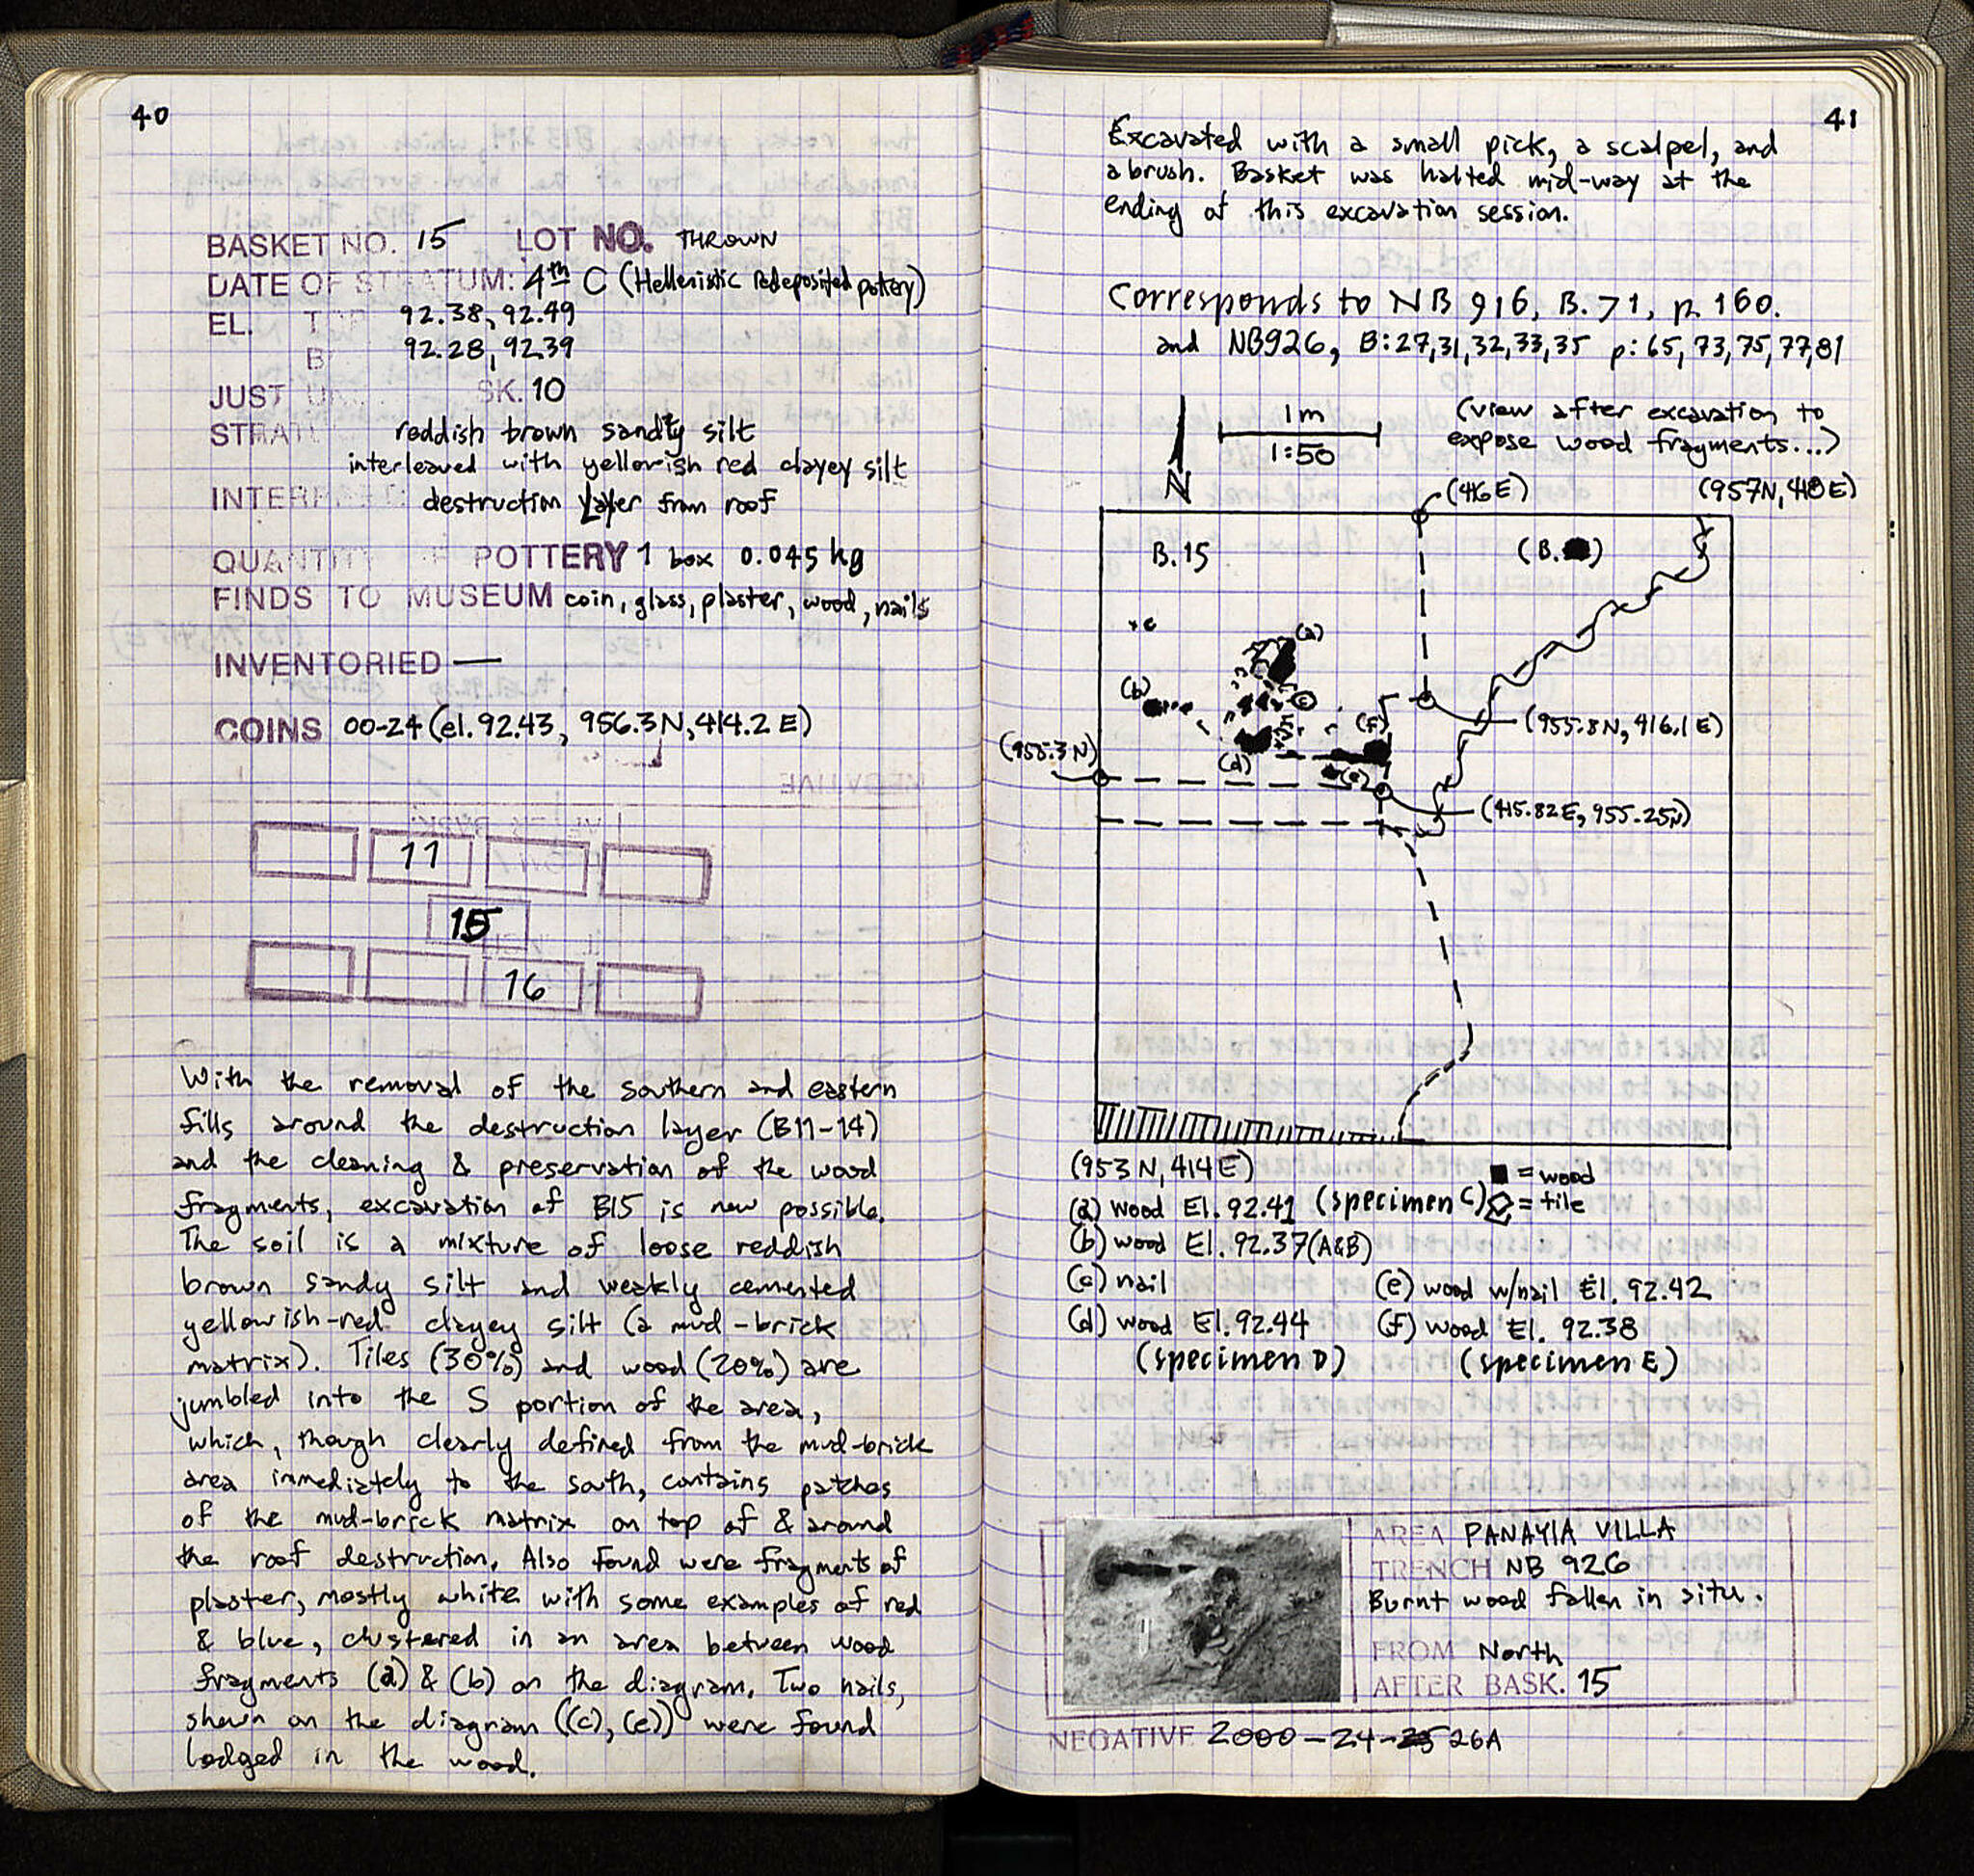 40
BASKET NO. 15 LOT NO. THROWN
DATE OF STRATUM: 4th C (Hellenistic redeposited pottery)
EL. TOP 92.38, 92.49
B 92.28, 92.39
JUST UN SK. 10
STRATU reddish brown sandy silt
interleaved with yellowish red clayey silt
INTERP destruction layer from roof
QUANTITY OF POTTERY 1 box 0.045 kg
FINDS TO MUSEUM coin, glass, plaster, wood, nails
INVENTORIED —
COINS 00-24 (el. 92.43, 956.3N, 414.2 E)
11
15
16
With the removal of the southern and eastern
fills around the destruction layer (B11-14)
and the cleaning & preservation of the wood
fragments, excavation of B15 is now possible.
The soil is a mixture of loose reddish
brown sandy silt and weakly cemented
yellowish-red clayey silt (a mud-brick
matrix). Tiles (30%) and wood (20%) are
jumbled into the S portion of the area,
which, though clearly defined from the mud-brick
area immediately to the south, contains patches
of the mud-brick matrix on top of & around
the roof destruction. Also found were fragments of
plaster, mostly white with some examples of red
& blue, clustered in an area between wood
fragments (a) & (b) on the diagram. Two nails,
shown on the diagram ((c), (e)) were found
lodged in the wood.
41
Excavated with a small pick, a scalpel, and
a brush. Basket was halted mid-way at the
ending of this excavation session.
Corresponds to NB 916, B.71, p. 160.
and NB926, B:27,31,32,33,35 p:65,73,75,77,81
1m
1:50
N
(view after excavation to
expose wood fragments...)
(416E)
(957N, 418E)
B.15
(B. )
(a)
(b)
(c)
(f)
(955.8N, 416.1E)
(955.3N)
(d)
(e)
(415.82E, 955.25N)
(953 N, 414E)
■ = wood
= tile
(a) wood El. 92.41 (specimen C)
(b) wood El. 92.37 (A&B)
(c) nail (e) wood w/nail El. 92.42
(d) wood El. 92.44 (f) wood El. 92.38
(specimen D) (specimen E)
AREA PANAYIA VILLA
TRENCH NB 926
Burnt wood fallen in situ.
FROM North
AFTER BASK. 15
NEGATIVE 2000-24-25 26A